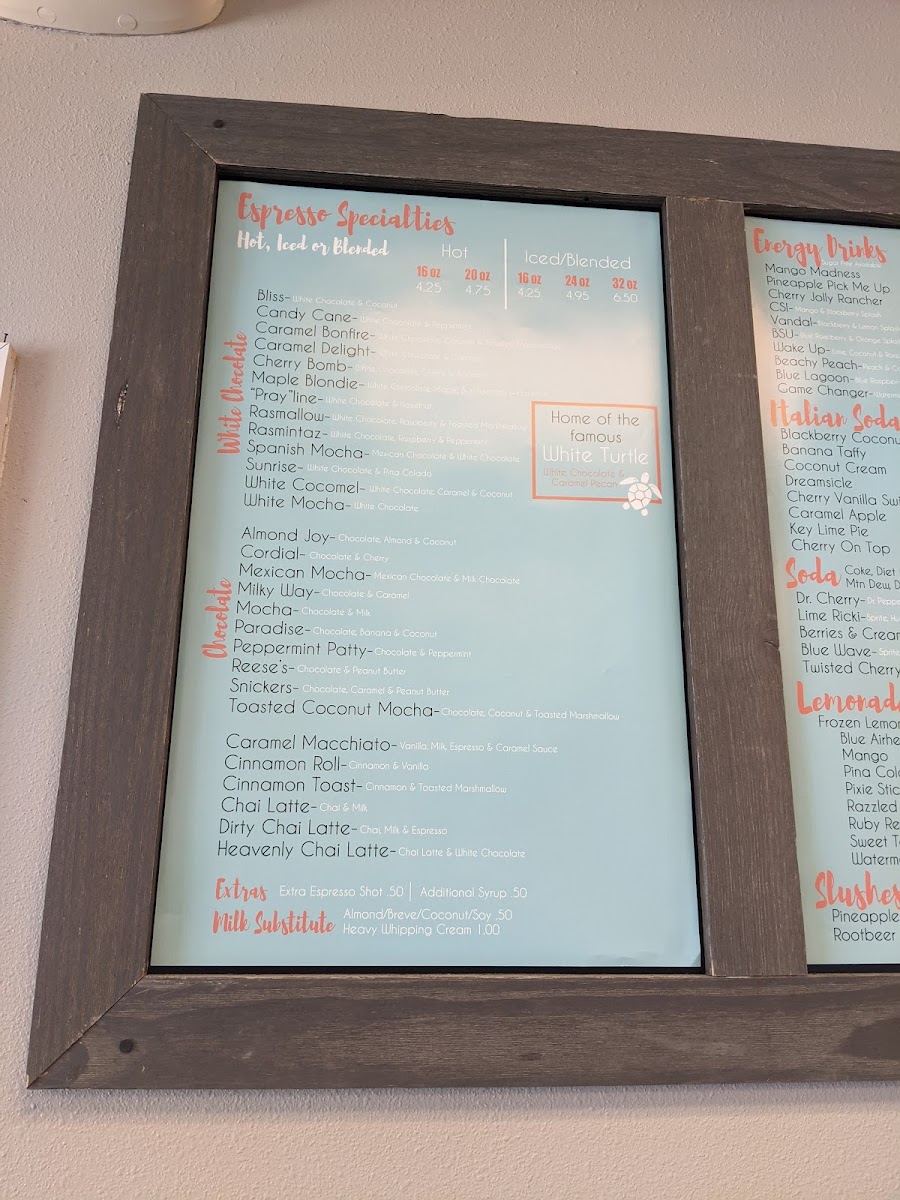 Espresso Specialties
Hot, Iced or Blended
Hot
16 oz 20 oz
4.25 4.75
Iced/Blended
16 oz 24 oz 32 oz
4.25 4.95 6.50
White Chocolate
Bliss- White Chocolate & Coconut
Candy Cane- White Chocolate & Peppermint
Caramel Bonfire-
Caramel Delight-
Cherry Bomb-
Maple Blondie-
"Pray"line- White Chocolate & Hazelnut
Rasmallow- White Chocolate, Raspberry & Toasted Marshmallow
Rasmintaz- White Chocolate, Raspberry & Peppermint
Spanish Mocha- Mexican Chocolate & White Chocolate
Sunrise- White Chocolate & Pina Colada
White Cocomel- White Chocolate, Caramel & Coconut
White Mocha- White Chocolate
Home of the
famous
White Turtle
White Chocolate &
Caramel Pecan
Chocolate
Almond Joy- Chocolate, Almond & Coconut
Cordial- Chocolate & Cherry
Mexican Mocha- Mexican Chocolate & Milk Chocolate
Milky Way- Chocolate & Caramel
Mocha- Chocolate & Milk
Paradise- Chocolate, Banana & Coconut
Peppermint Patty- Chocolate & Peppermint
Reese's- Chocolate & Peanut Butter
Snickers- Chocolate, Caramel & Peanut Butter
Toasted Coconut Mocha- Chocolate, Coconut & Toasted Marshmallow
Caramel Macchiato- Vanilla, Milk, Espresso & Caramel Sauce
Cinnamon Roll- Cinnamon & Vanilla
Cinnamon Toast- Cinnamon & Toasted Marshmallow
Chai Latte- Chai & Milk
Dirty Chai Latte- Chai, Milk & Espresso
Heavenly Chai Latte- Chai Latte & White Chocolate
Extras Extra Espresso Shot .50 | Additional Syrup .50
Milk Substitute Almond/Breve/Coconut/Soy .50
Heavy Whipping Cream 1.00
Energy Drinks
Sugar Free Available
Mango Madness
Pineapple Pick Me Up
Cherry Jolly Rancher
CSI- Mango & Blackberry Splash
Vandal- Blackberry & Lemon Splash
BSU- Blue Raspberry & Orange Splash
Wake Up-
Beachy Peach- Peach &
Blue Lagoon- Blue Raspberry
Game Changer-
Italian Soda
Blackberry Coconu
Banana Taffy
Coconut Cream
Dreamsicle
Cherry Vanilla Swi
Caramel Apple
Key Lime Pie
Cherry On Top
Soda Coke, Diet
Mtn Dew, D
Dr. Cherry- Dr. Peppe
Lime Ricki- Sprite,
Berries & Crea
Blue Wave- Sprite
Twisted Cherry
Lemonad
Frozen Lemo
Blue Airhe
Mango
Pina Col
Pixie Stic
Razzled
Ruby Re
Sweet T
Waterm
Slushes
Pineapple
Rootbeer